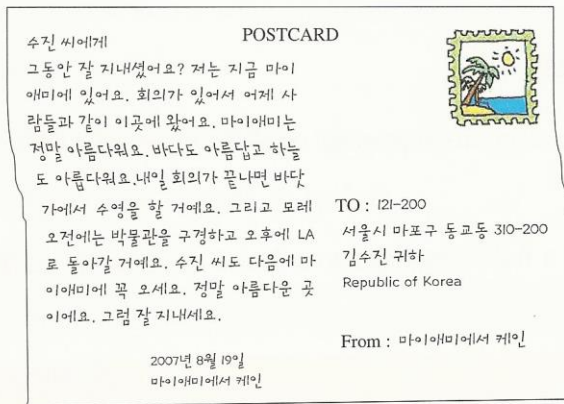 POSTCARD
수진 씨에게
그동안 잘 지내셨어요? 저는 지금 마이
애미에 있어요. 회의가 있어서 어제 사
람들과 같이 이곳에 왔어요. 마이애미는
정말 아름다워요. 바다도 아름답고 하늘
도 아름다워요.내일 회의가 끝나면 바닷
가에서 수영을 할 거예요. 그리고 모레
오전에는 박물관을 구경하고 오후에 LA
로 돌아갈 거예요. 수진 씨도 다음에 마
이애미에 꼭 오세요. 정말 아름다운 곳
이에요. 그럼 잘 지내세요.
2007년 8월 19일
마이애미에서 케인
TO : 121-200
서울시 마포구 동교동 310-200
김수진 귀하
Republic of Korea
From : 마이애미에서 케인